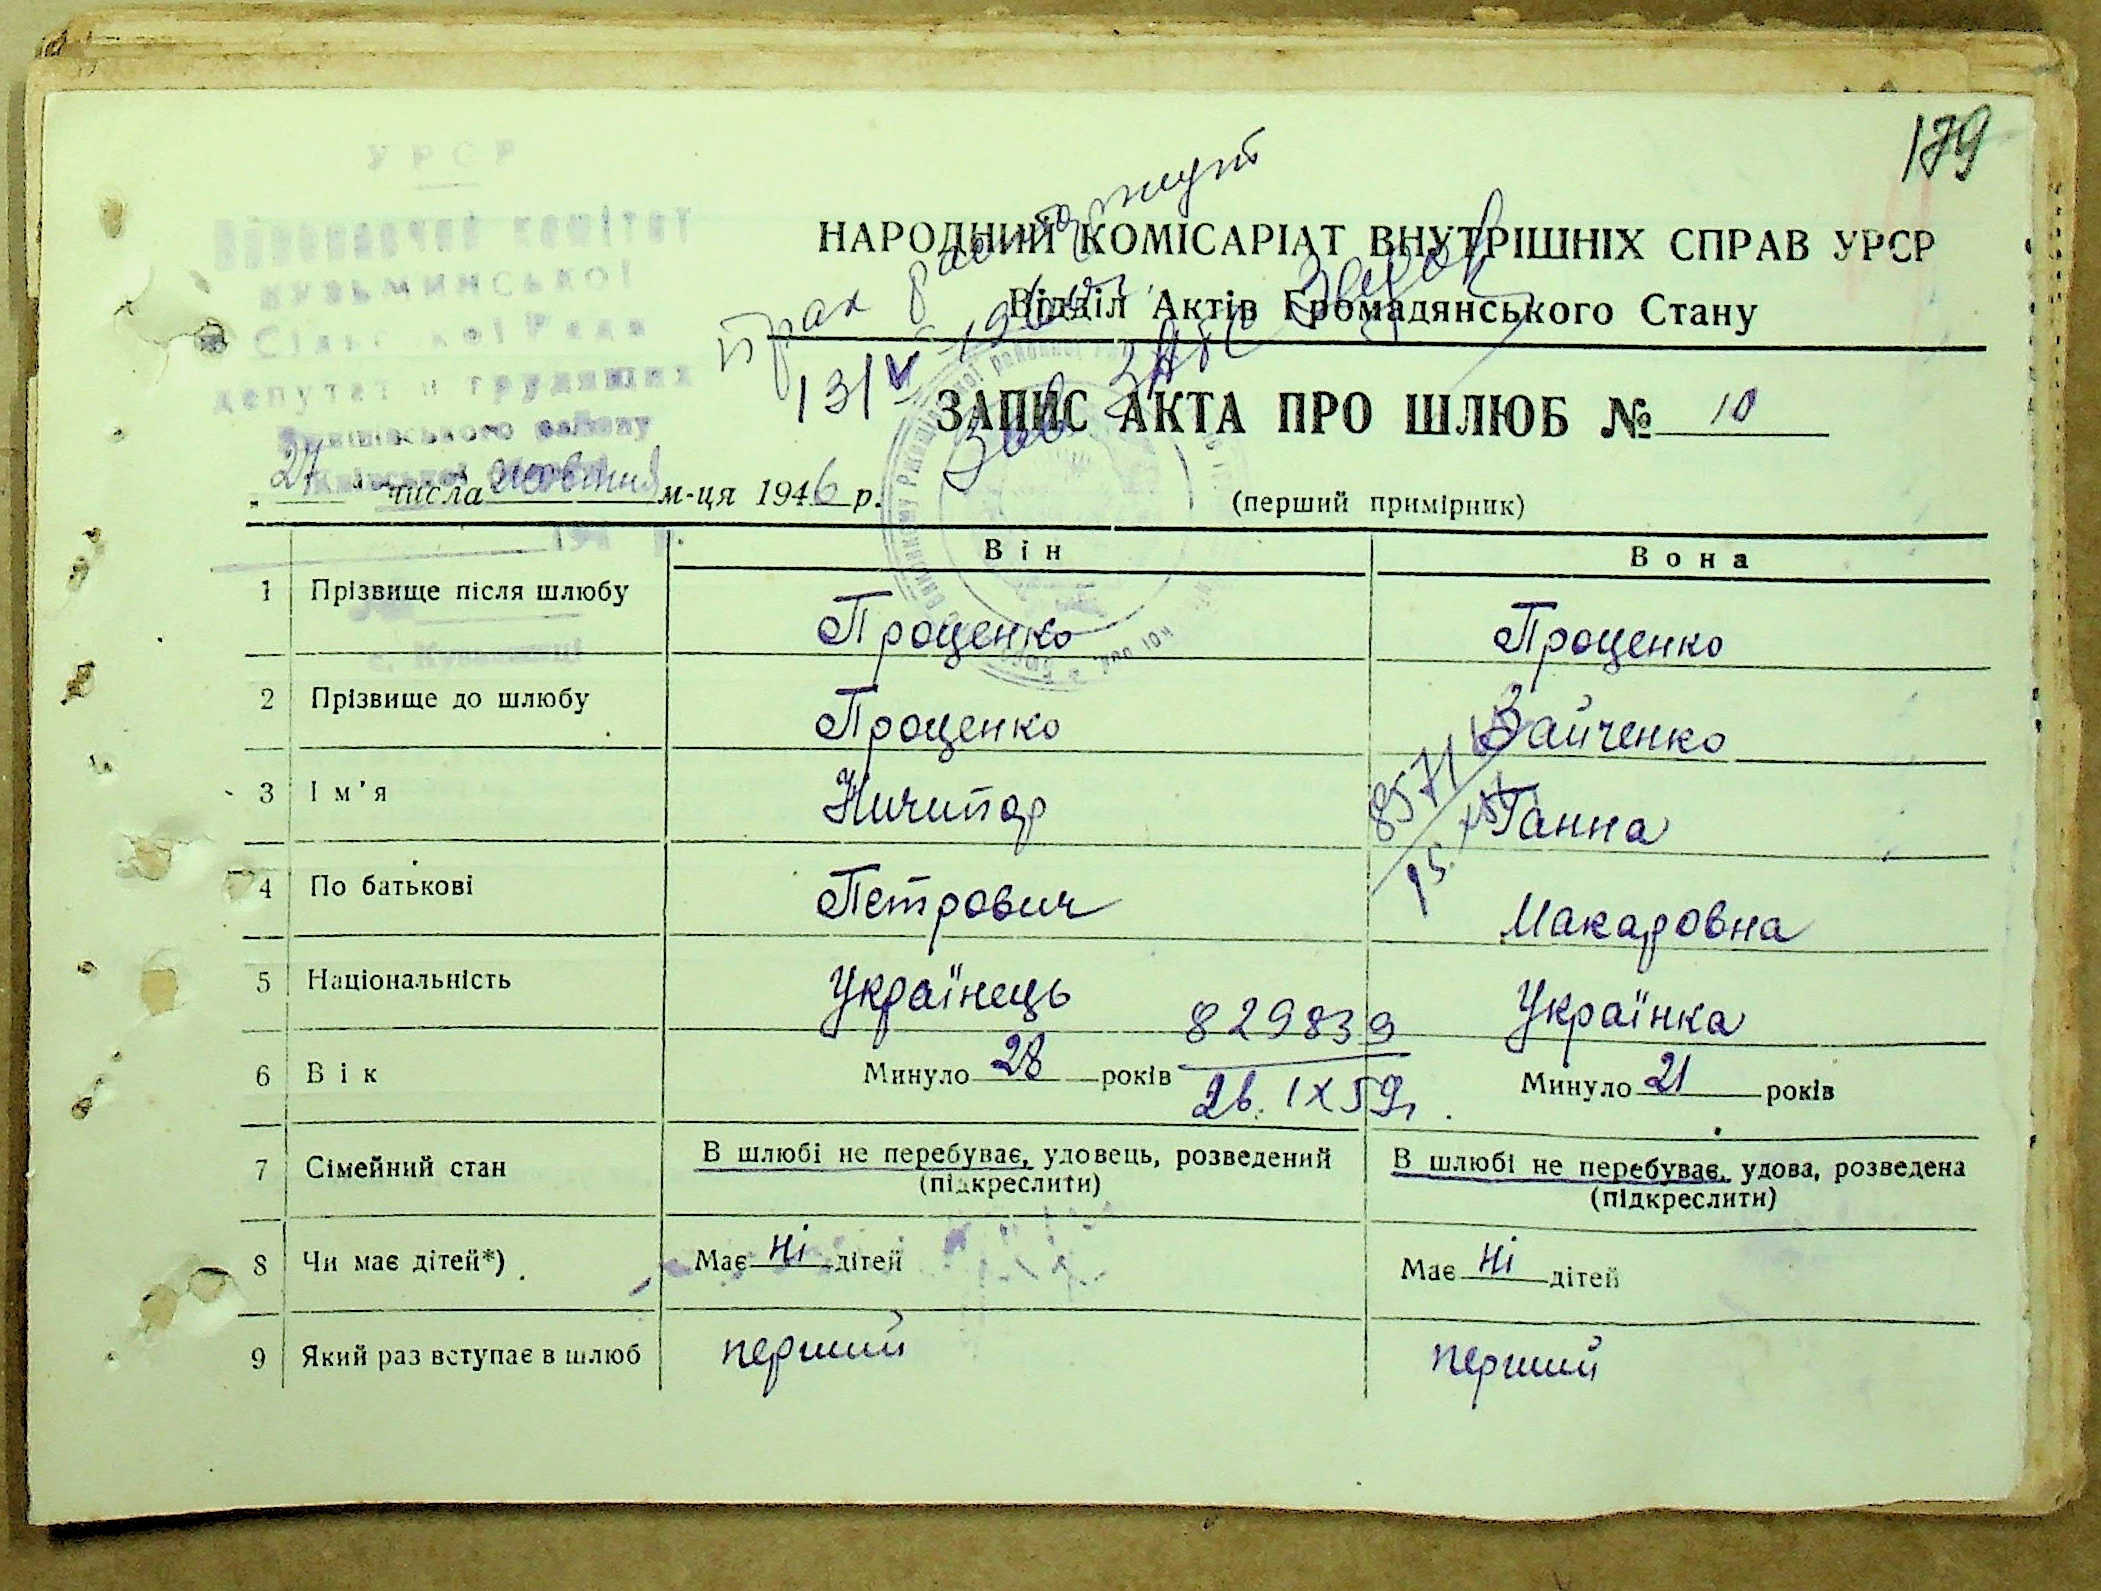 179
УРСР
Виконавчий комітет
Кузьминської
Сільської Ради
депутатів трудящих
району
Київської області
с. Кузьминці
НАРОДНИЙ КОМІСАРІАТ ВНУТРІШНІХ СПРАВ УРСР
Відділ Актів Громадянського Стану
брак расторгнут
13/V
Зав ЗАГС
ЗАПИС АКТА ПРО ШЛЮБ № 10
„27" числа жовтня м-ця 1946 р.
(перший примірник)
Він Вона
1 Прізвище після шлюбу Проценко Проценко
2 Прізвище до шлюбу Проценко Зайченко
3 Ім'я Ничипор Ганна
4 По батькові Петрович Макаровна
5 Національність Українець Українка
829839
26. IX 59г.
6 Вік Минуло 28 років Минуло 21 років
7 Сімейний стан В шлюбі не перебуває, удовець, розведений (підкреслити) В шлюбі не перебуває, удова, розведена (підкреслити)
8 Чи має дітей*) Має ні дітей Має ні дітей
9 Який раз вступає в шлюб перший перший